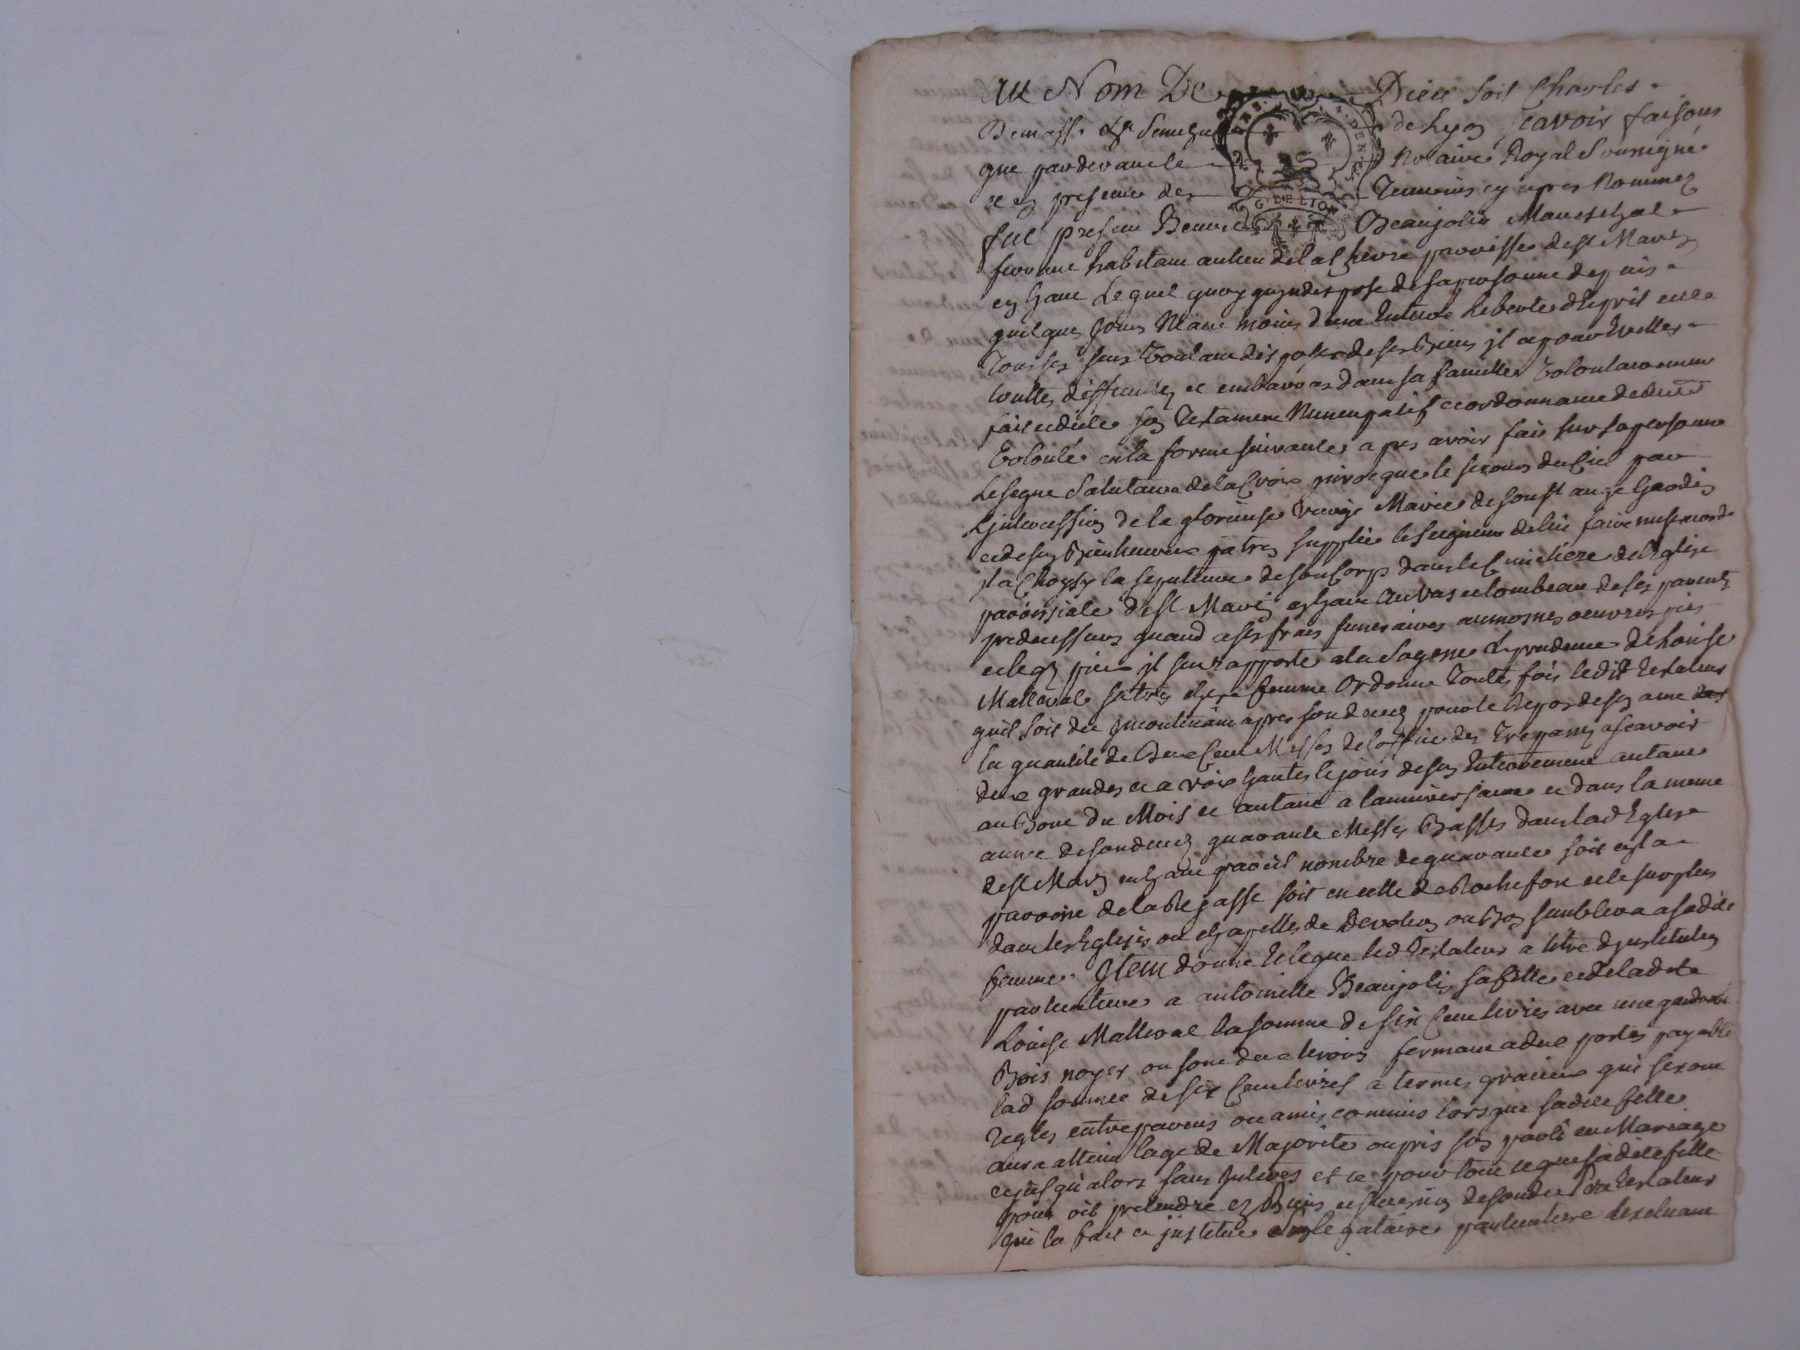 Au Nom De Dieu soit Charles
Demasso de Lyon scavoir faisons
que pardevant le Notaire Royal Soussigné
et en presence des Temoins cy apres Nommez
fut present Benoit Beaujolin Mareschal
ferrant habitant au lieu de la Chevre parroisse de St Marti
en haut Lequel quoy de sa personne depuis
quelques Jours Neant moins dune Entiere Liberte dEsprit et de
Tous ses sens Voulant disposer de ses Biens il a pour Eviter
touttes difficultez et embarras dans sa famille Volontairement
fait et dicte son Testament Nuncupatif et ordonnance de dernie
Volonté en la forme suivante apres avoir fait sur sa personne
Le signe Salutaire de la Croix jnvoque le secours du Ciel par
Ljntercession de la glorieuse Vierge Marie de son St ange Gardien
et de son Bienheureux patron supplie le Seigneur de lui faire misericorde
jl a Choysy la sepulture de son Corp dans le Cimetiere de lEglise
parroissiale de St Martin en haut au Vas et tombeau de ses parents
predecesseurs quand a ses frais funeraires aumosnes oeuvres pies
et legs pieux jl sen rapporte a la Sagesse et prudence de Louise
Malleval sa tres chere femme Ordonne Toutes fois ledit Testateur
quil soit dit jncontinant apres son decez pour le Repos de son ame
la quantité de Deux Cent Messes de loffice des Trepassez a scavoir
deux grandes et a voix hautes le jour de son Enterrement autant
au Bout du Mois et autant a lanniversaire et dans la meme
annee de son decez quarante Messes Basses dans lad Eglise
de St Martin en haut pareil nombre de quarante soit en la
parroisse de la Rejasse soit en celle de Rochefort et le surplus
dans les Eglises ou chapelles de Devotion ou Bon semblera a sadite
femme. Jtem donne et legue led Testateur a titre djnstitution
particuliere a antoinette Beaujolin sa fille et de ladite
Louise Malleval la somme de six Cent livres avec une garderobe
Bois noyer ou sont deux tiroirs fermant a deux portes payable
lad somme de six Cent livres a termes gracieux qui seront
regles entre parens ou amis communs lorsque sadite fille
aura atteint lage de Majorite ou pris son parti en Mariage
et jusqu'alors sans jnterest et ce pour tout ce que sadite fille
pourroit pretendre ez Biens et succession de son dit Testateur
qui la fait et jnstitue legataire particuliere lexcluant